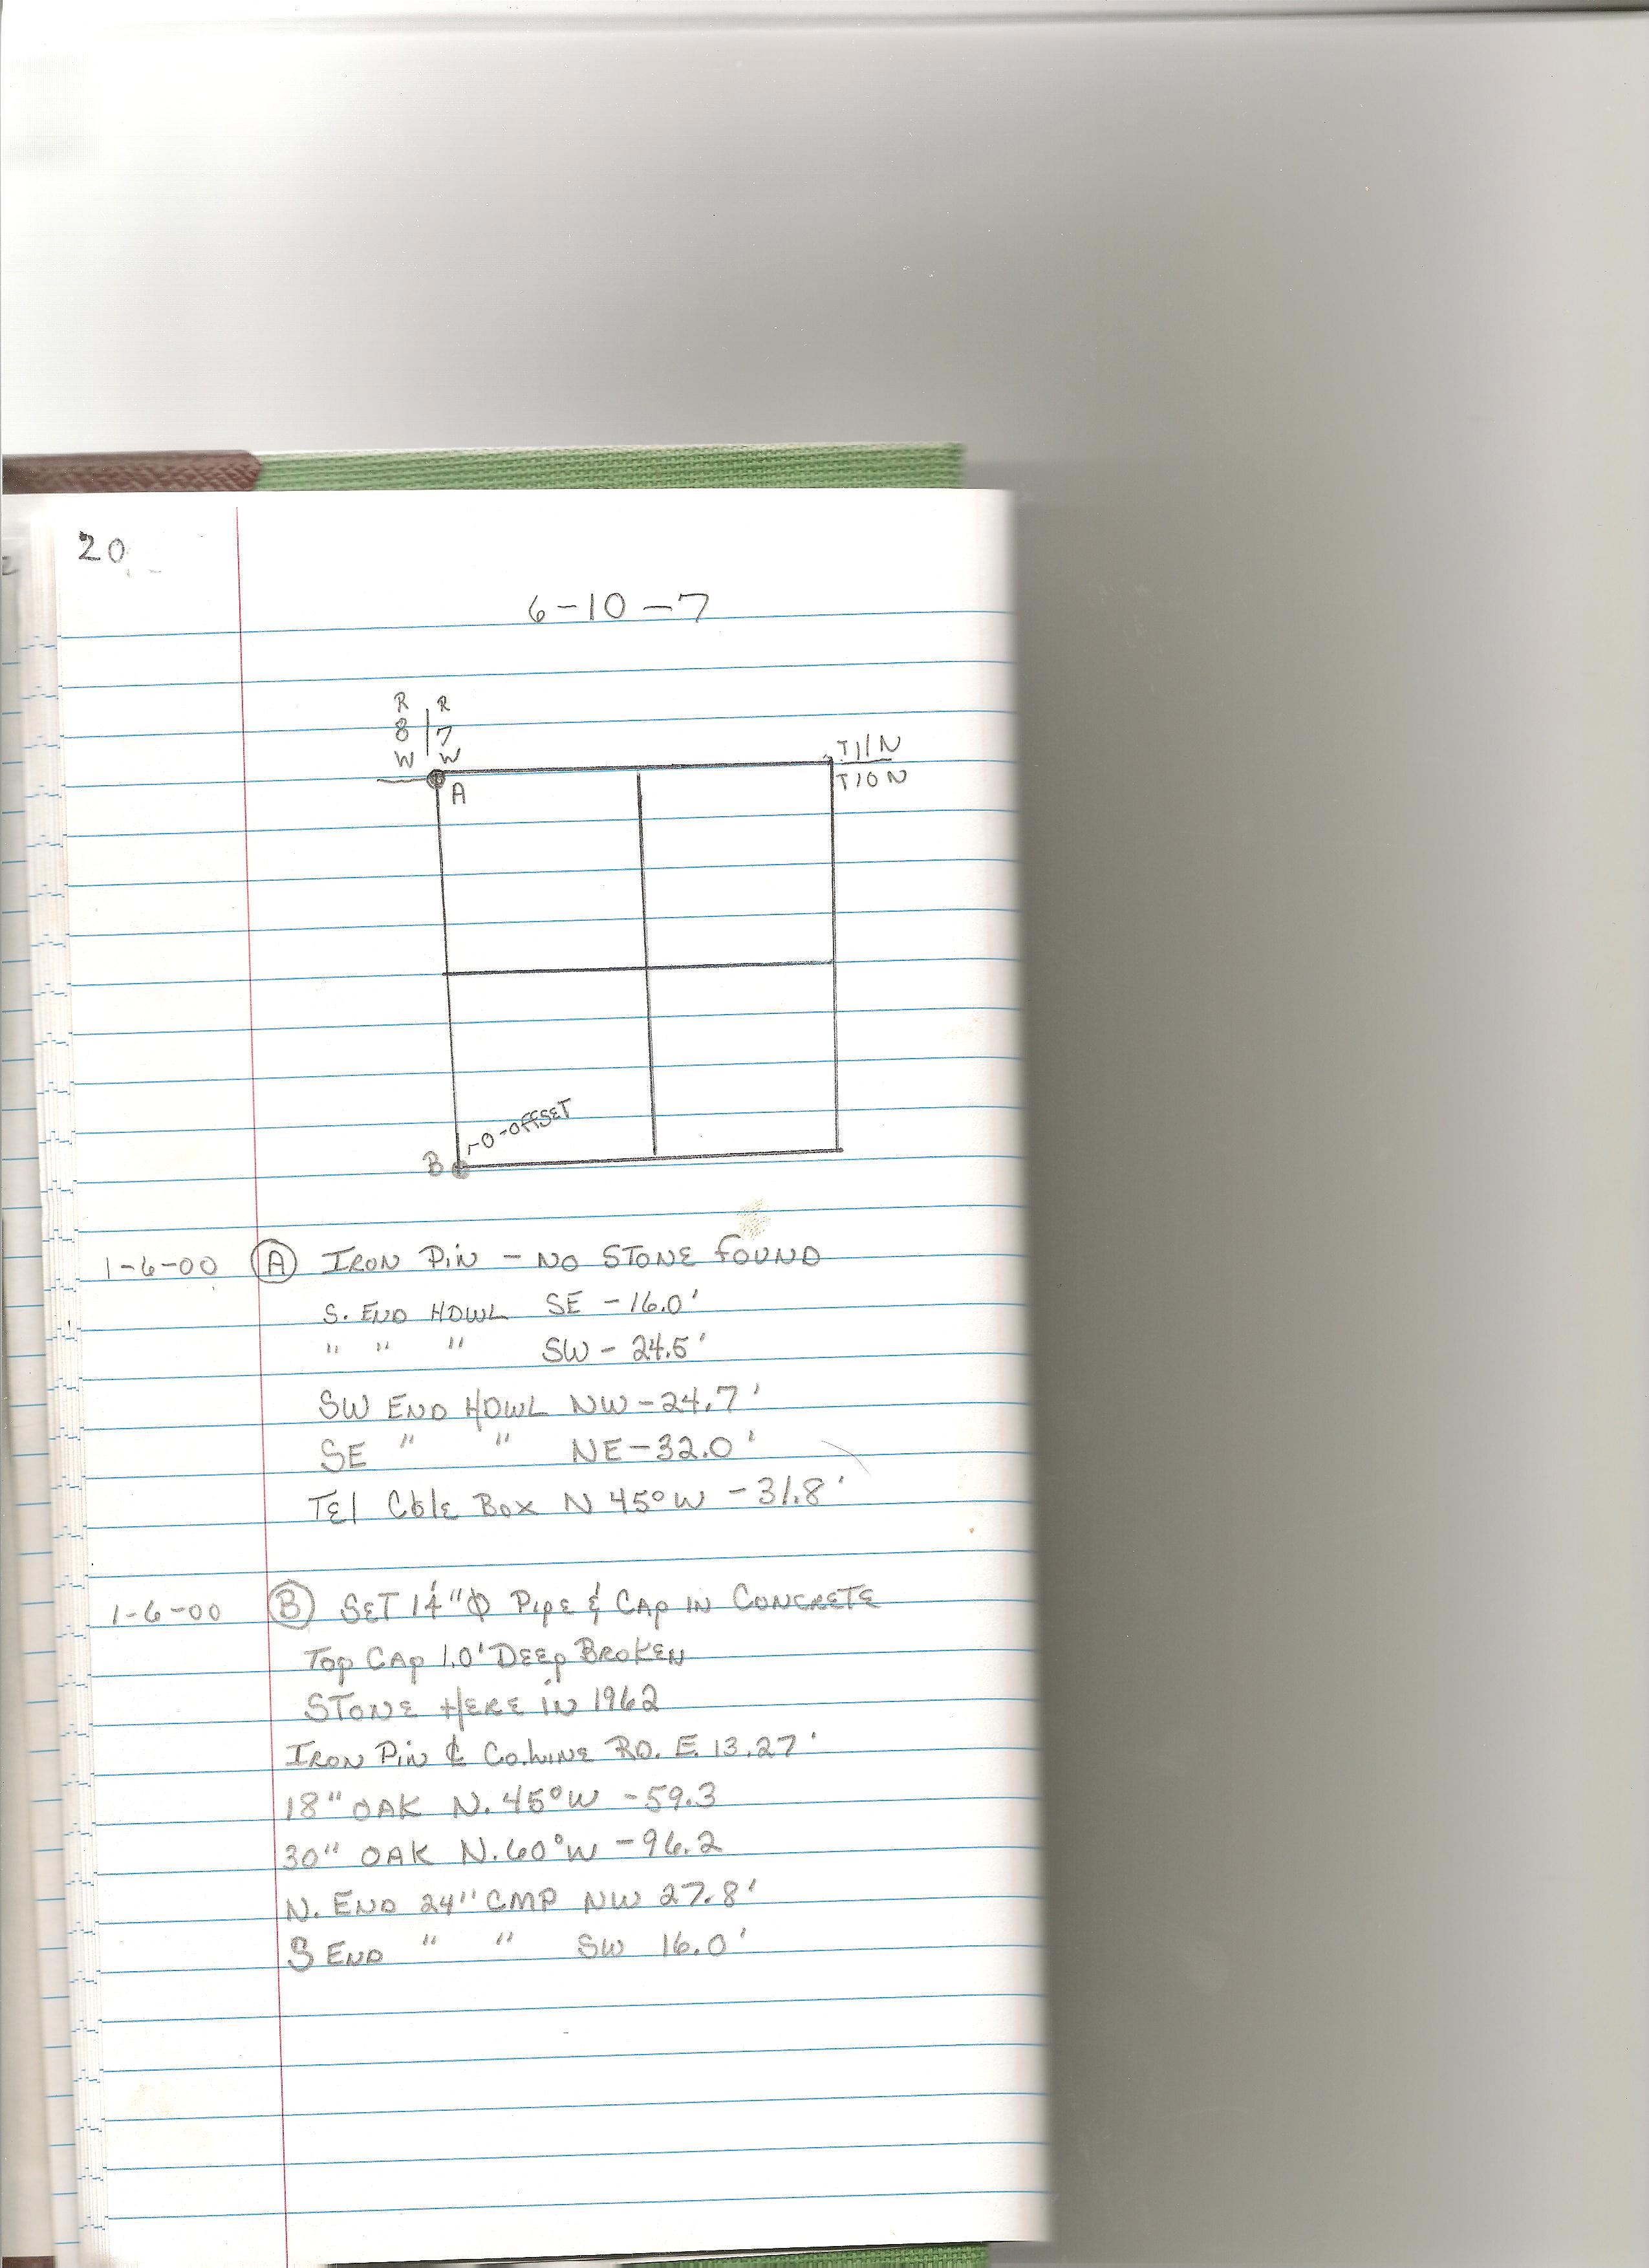 20
6-10-7
R | R
8 | 7
W | W
T11N
T10N
A
-0-OFFSET
B
1-6-00 (A) IRON PIN - NO STONE FOUND
S. END HDWL SE - 16.0'
" " " SW - 24.5'
SW END HDWL NW - 24.7'
SE " " NE - 32.0'
TEl CblE Box N 45° W - 31.8'
1-6-00 (B) SET 1¼"Φ PIPE & CAP IN CONCRETE
TOP CAP 1.0' DEEP BROKEN
STONE HERE IN 1962
IRON PIN ℄ CO. LINE RD. E. 13.27'
18" OAK N. 45° W - 59.3
30" OAK N. 60° W - 96.2
N. END 24" CMP NW 27.8'
S END " " SW 16.0'